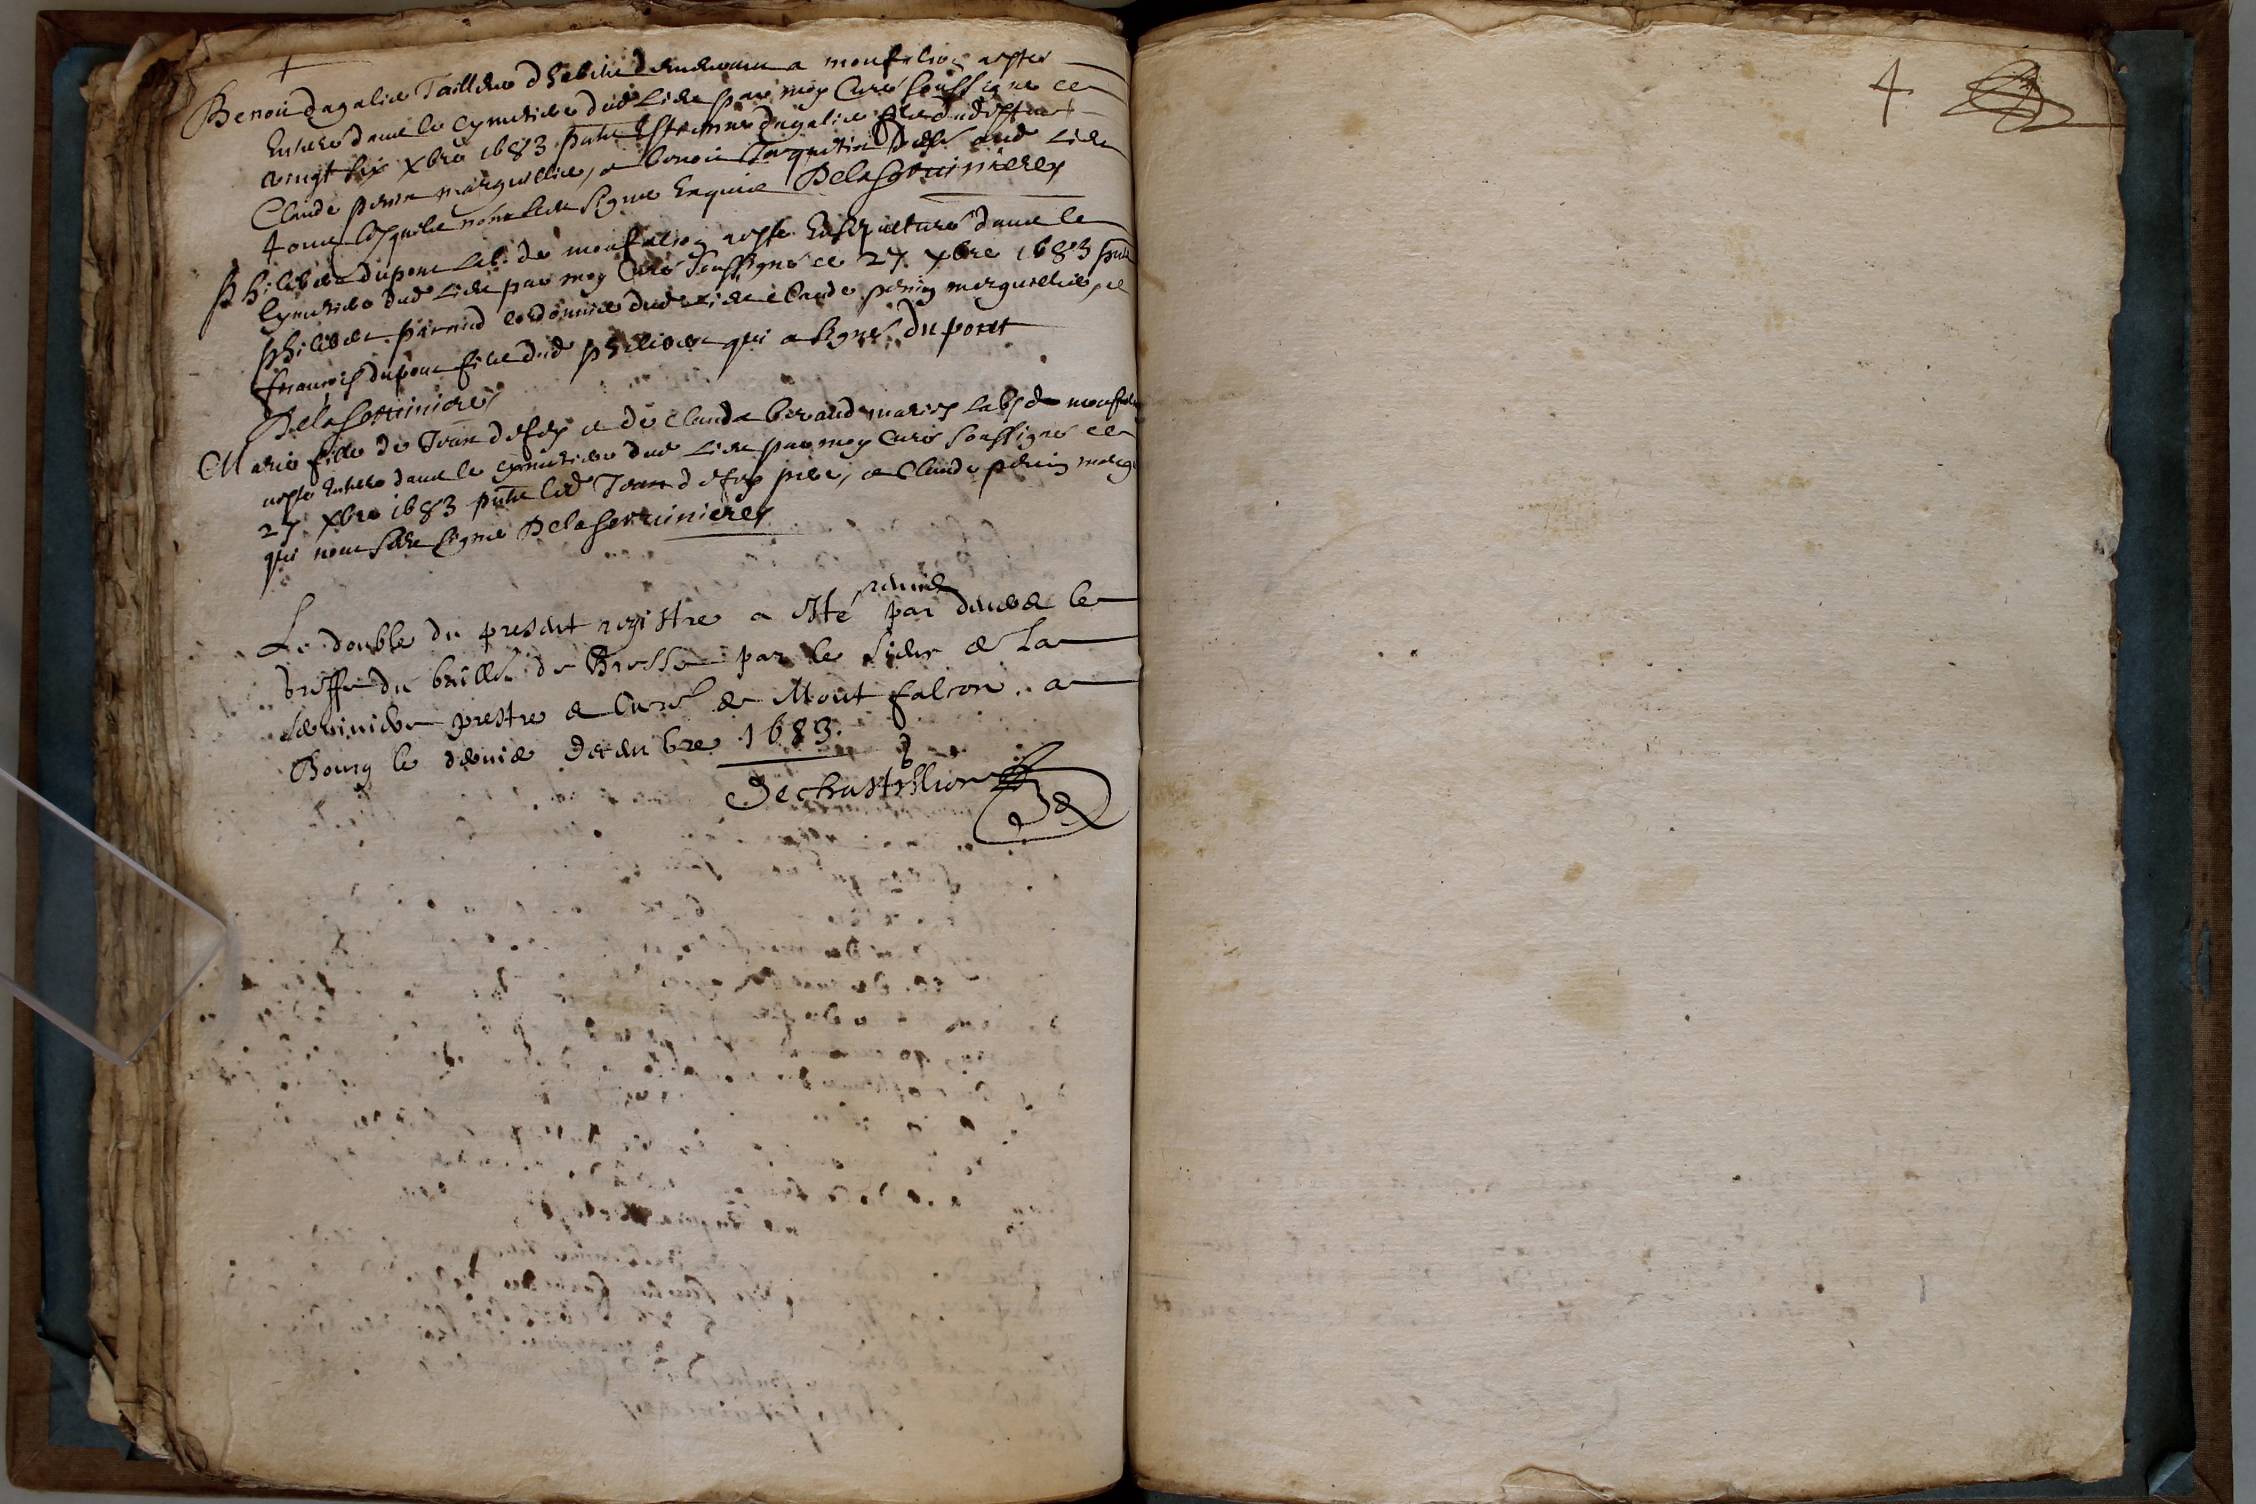 Benoit dagalier Tailleur dhabitz demeurant a monfalcon a esté
Enterré dans le cymetiere dud Lieu par moy Curé soussigné ce
vingt six xbre 1683 pntz Estienne dagalier filz dud deffunt
Claude perrin marguillier, et benoit
tous lesquelz nont sceu signer Enquis Delaserviniere
philibert dupont lab. de monfalcon a esté Ensepulturé dans le
Cymetiere dud Lieu par moy Curé soussigné ce 27 xbre 1683 pntz
philibert cordonnier dud Lieu Claude perrin marguillier, et
francois dupont filz dud philibert qui a signé dupont
Delaserviniere
Marie fille de Jean et de Claude beraud mariez lab. de monfalcon
a esté Enterré dans le cymetiere dud Lieu par moy Curé soussigné ce
27 xbre 1683 pntz led Jean pere, et Claude perrin marg
qui nont sceu signer Delaserviniere
Le double du present registre a esté remis par devers le
greffe du bailliage de Bresse par le sieur de La
Serviniere prestre et Curé de Mont falcon. a
Bourg le dernier decembre 1683.
Dechastillion
4